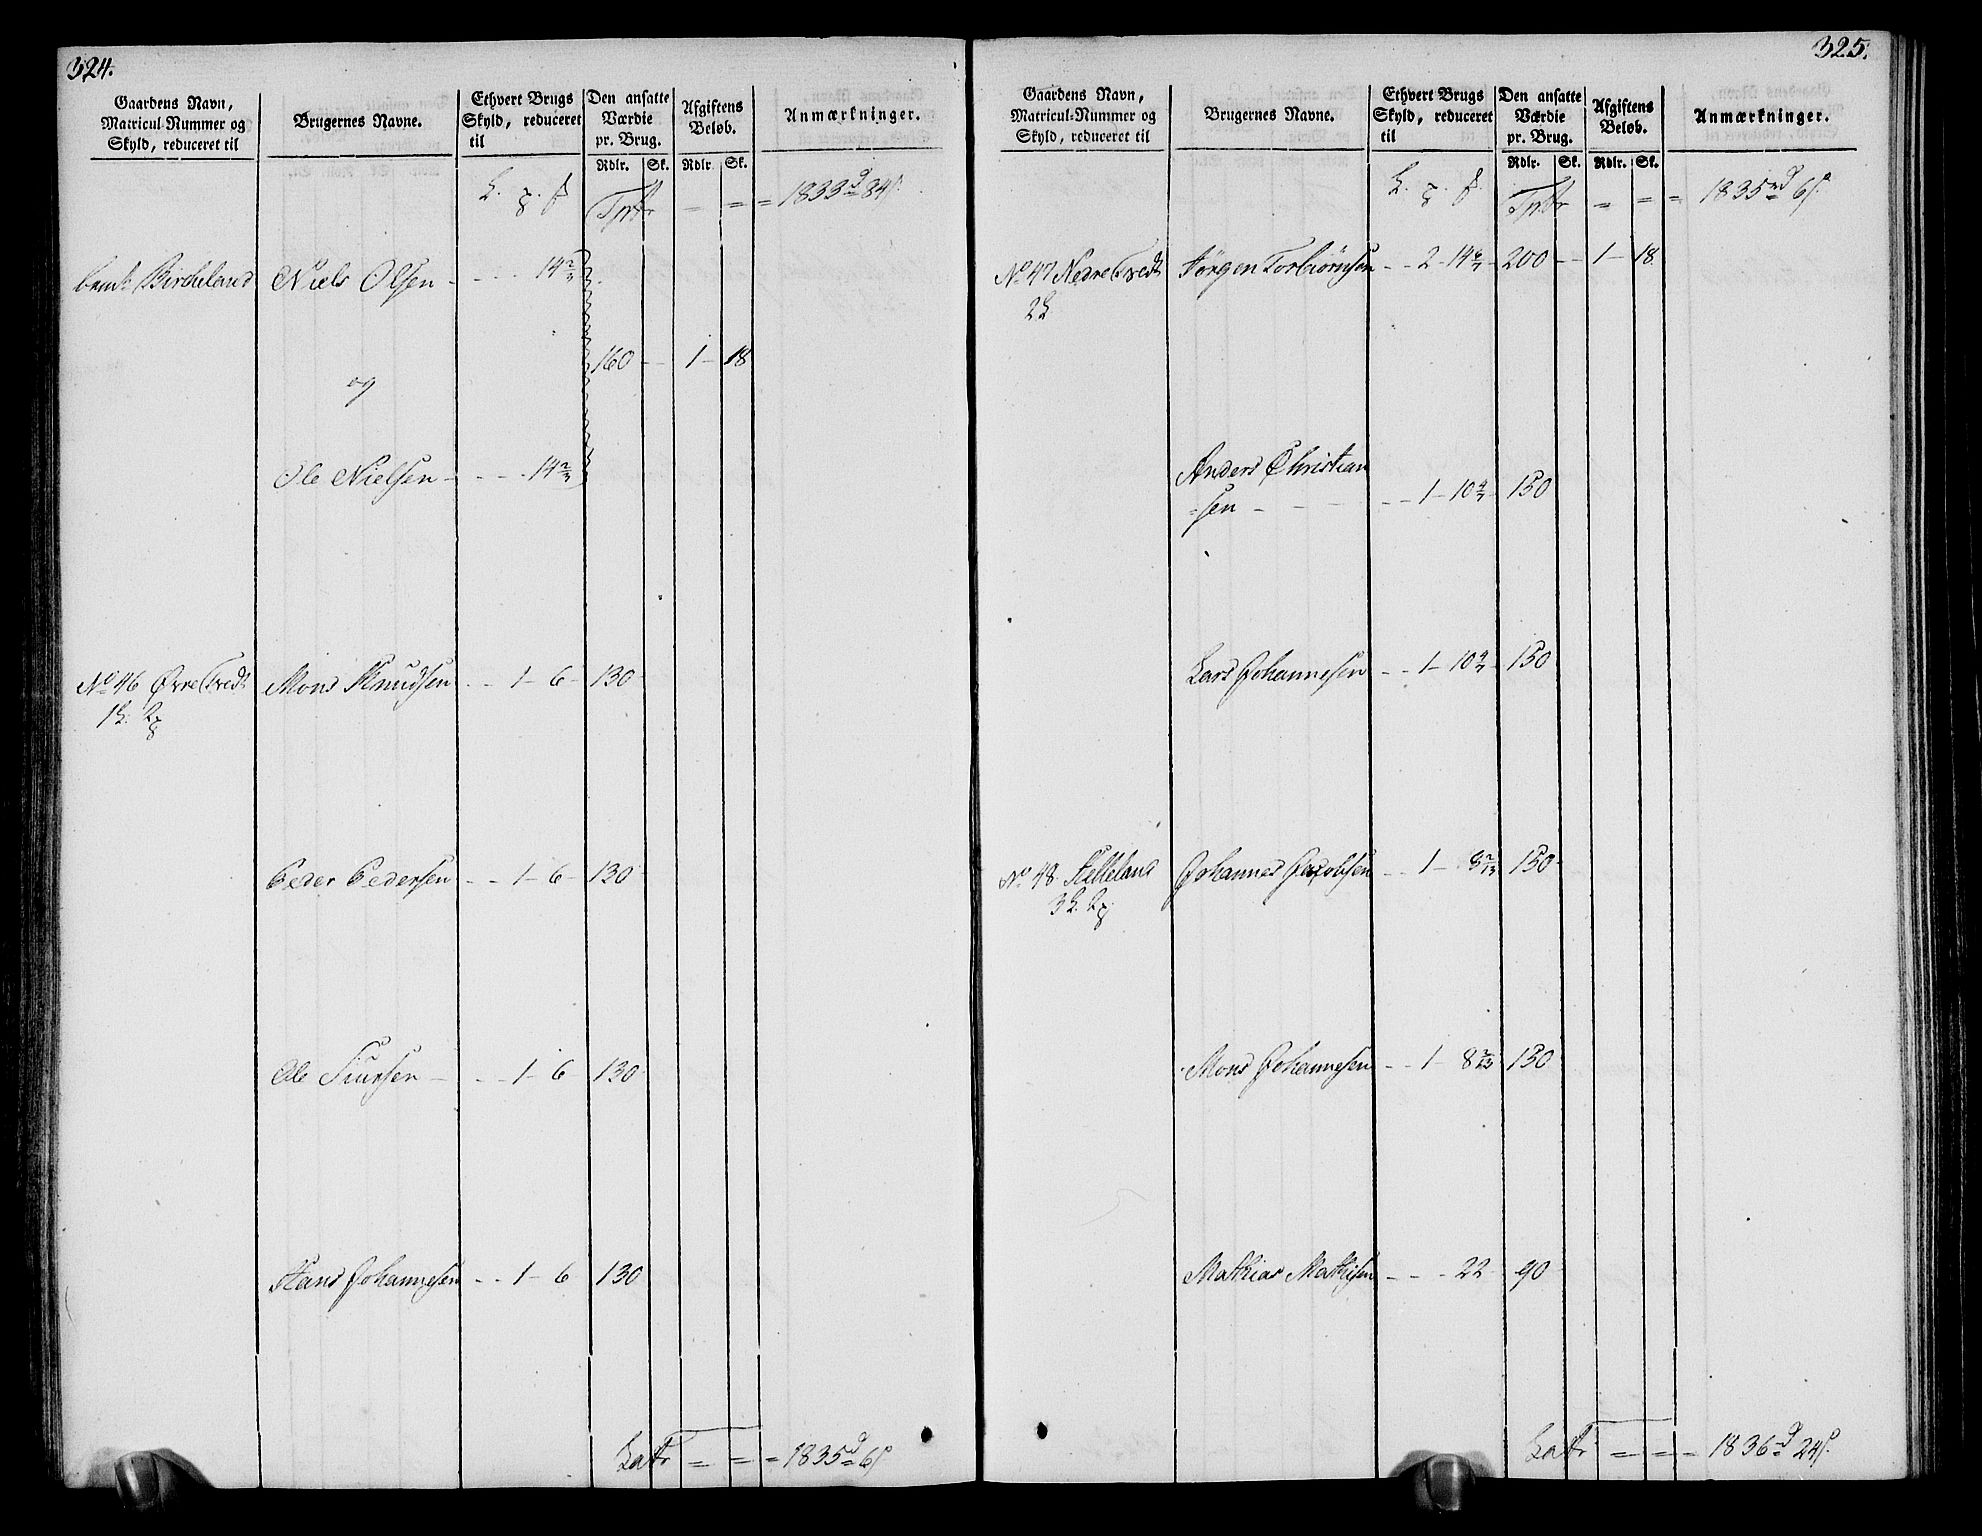 324.
Gaardens Navn, Matricul-Nummer og Skyld, reduceret til
Brugernes Navne.
Ethvert Brugs Skyld, reduceret til
Den ansatte Værdie pr. Brug.
Afgiftens Beløb.
Anmærkninger.
Rdlr. Sk. Rdlr. Sk.
Tptr = = = 1833 d 84 s.
Birckeland Niels Olsen - - - 14 2/3
160 - 1 - 18
og
Ole Nielsen - - - 14 2/3
No 46 Øvre Tvedt Mons Knudsen - - 1 - 6 - 130
Peder Pedersen - - 1 - 6 - 130
Ole Siursen - - - 1 - 6 130
Hans Johannesen - - 1 - 6 130
Latr = = = 1835 d 6 s
325.
Gaardens Navn, Matricul-Nummer og Skyld, reduceret til
Brugernes Navne.
Ethvert Brugs Skyld, reduceret til
Den ansatte Værdie pr. Brug.
Afgiftens Beløb.
Anmærkninger.
Rdlr. Sk. Rdlr. Sk.
Tptr = = = 1835 rd 6 s
No 47 Nedre Tvedt Jørgen Torbiørnsen - - 2 - 14 6/7 - 200 - - 1 - 18.
Anders Christian
=sen - - - - - 1 - 10 4/7 - 150
Lars Johannesen - - 1 - 10 4/7 - 150
No 48. Helleland Johannes Jacobsen - - 1 - 8 2/13 150
Mons Johannesen - - 1 - 8 2/13 150
Mathias Mathisen - - - 22 - 90
Latr = = = 1836 rd 24 s.